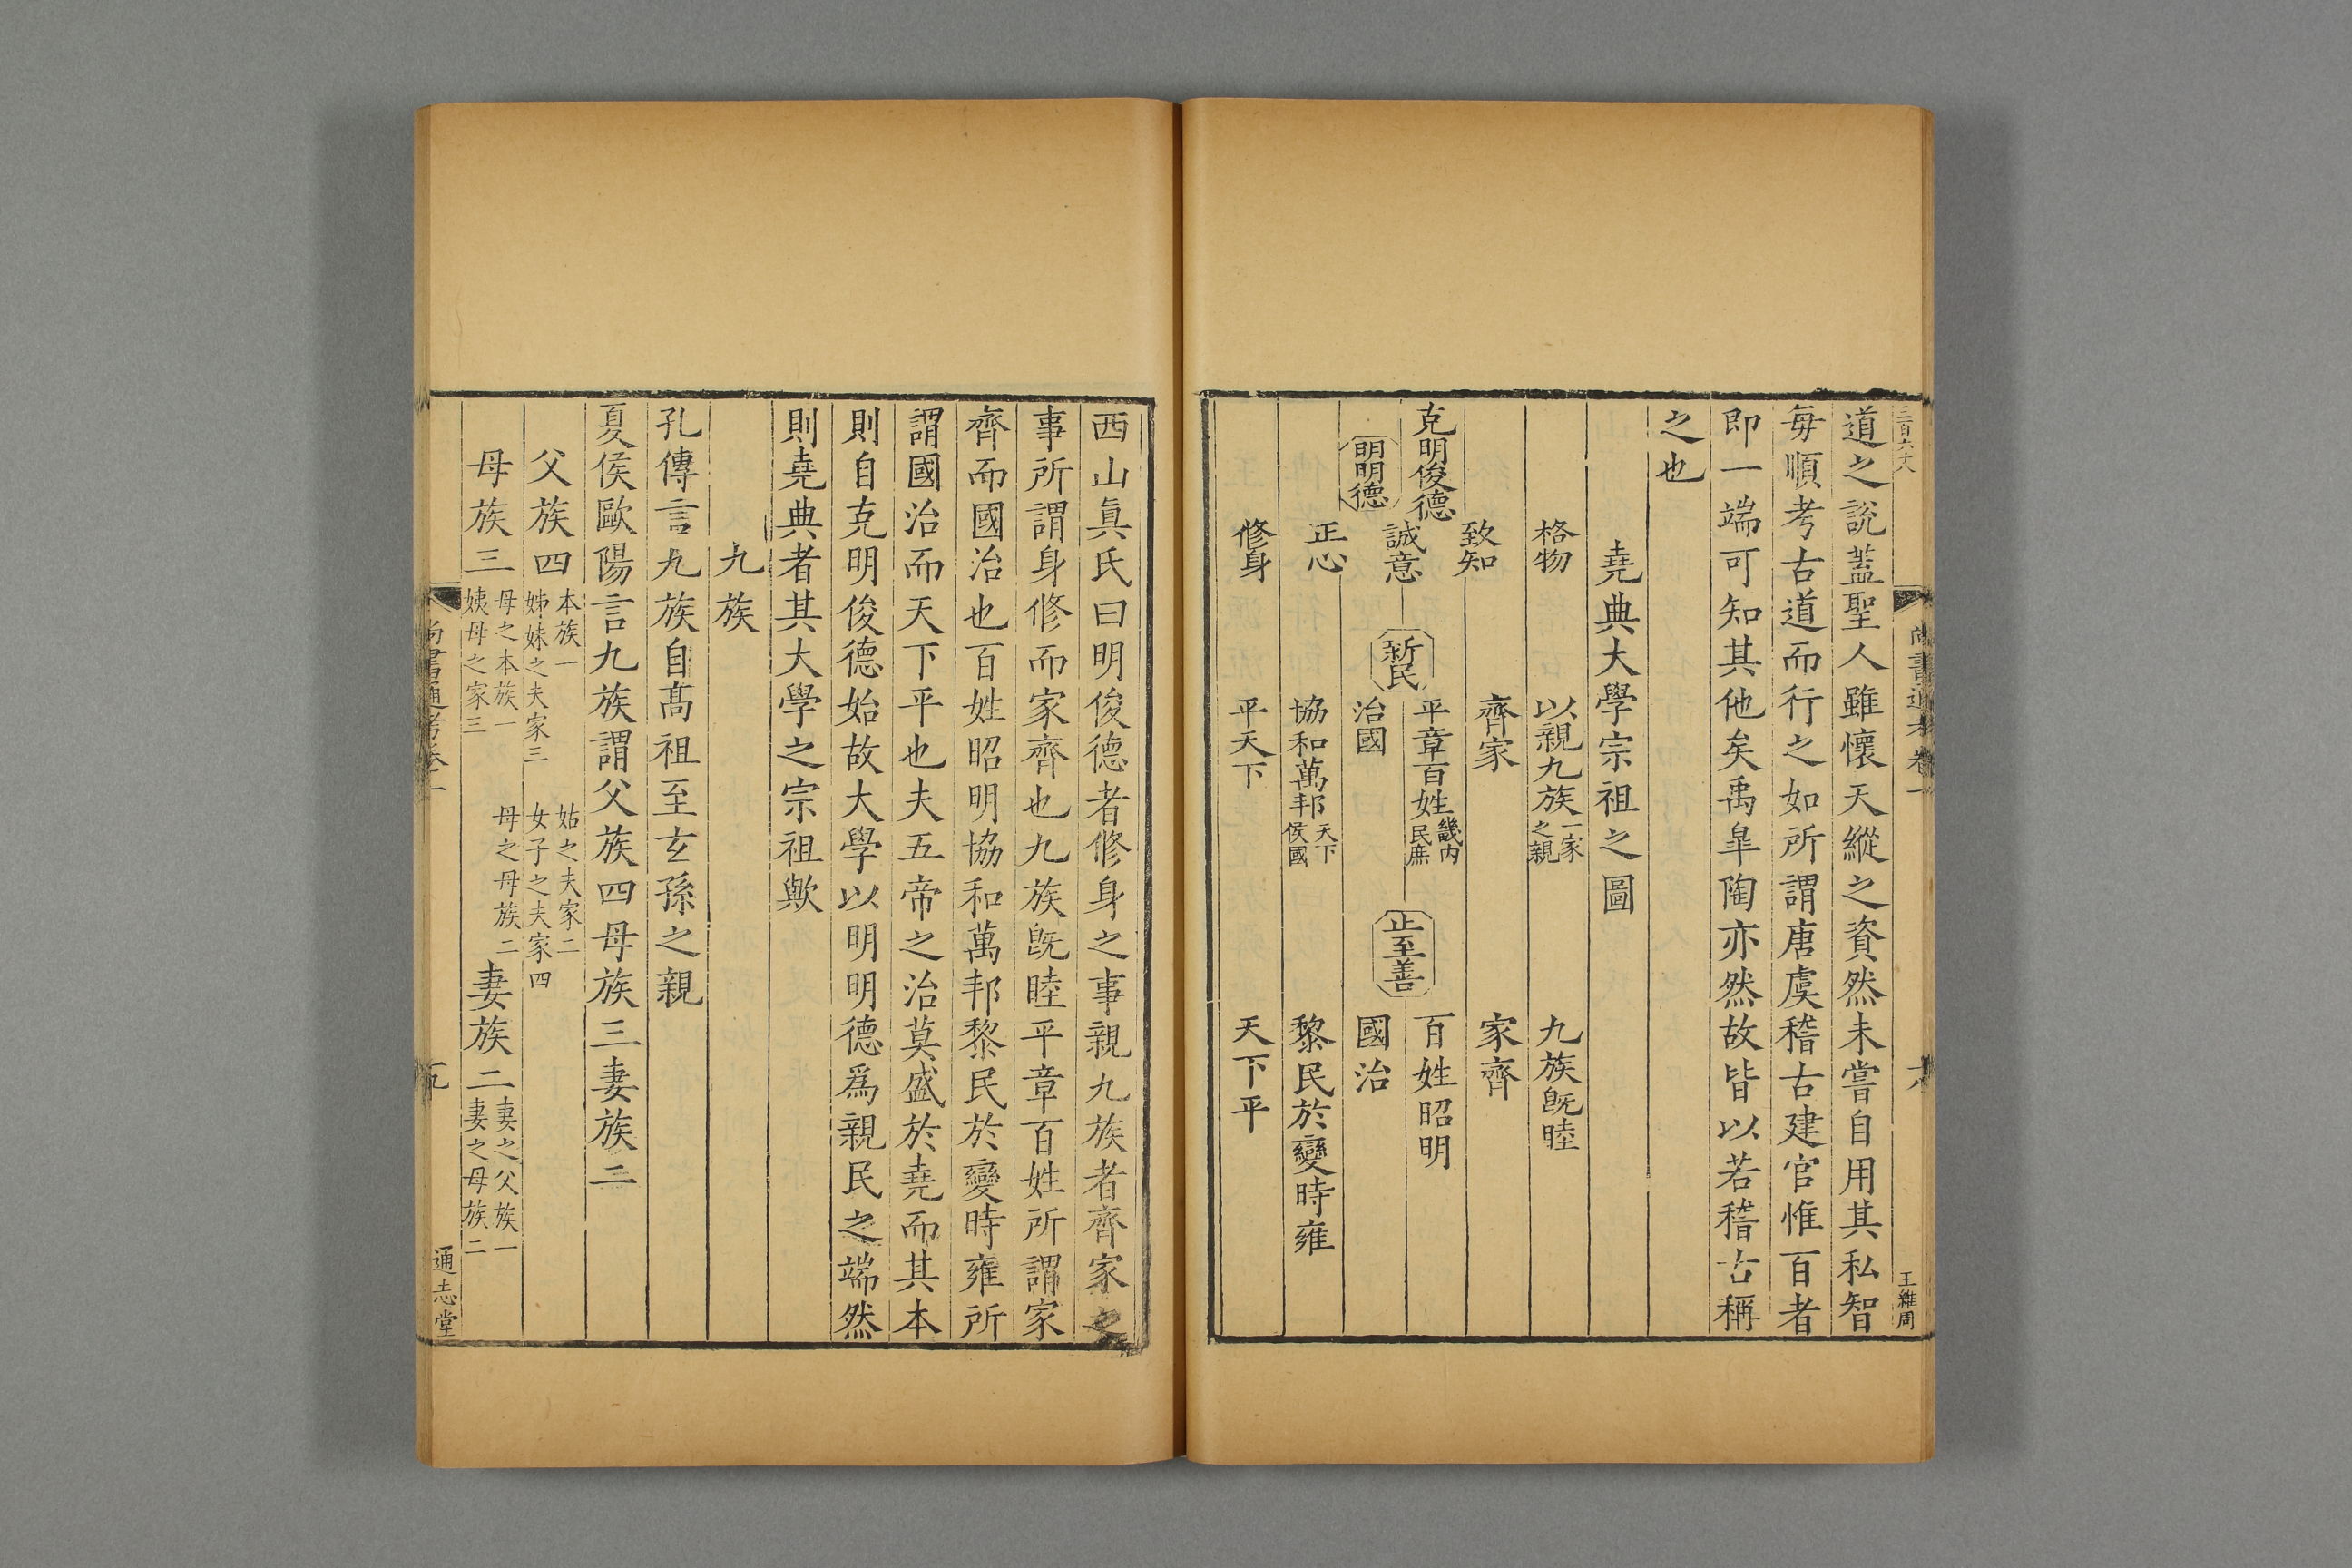 三百六十八
尚書通考卷一
六
王雜周
道之説葢聖人雖懷天縱之資然未嘗自用其私智
每順考古道而行之如所謂唐虞稽古建官惟百者
即一端可知其他矣禹臯陶亦然故皆以若稽古稱
之也
堯典大學宗祖之圖
格物
以親九族一家之親
九族旣睦
致知
齊家
家齊
克明俊德
平章百姓畿内民庶
百姓昭明
誠意
新民
止至善
明明德
治國
國治
正心
協和萬邦天下侯國
黎民於變時雍
修身
平天下
天下平
西山眞氏曰明俊德者修身之事親九族者齊家之
事所謂身修而家齊也九族旣睦平章百姓所謂家
齊而國治也百姓昭明協和萬邦黎民於變時雍所
謂國治而天下平也夫五帝之治莫盛於堯而其本
則自克明俊德始故大學以明明德爲親民之端然
則堯典者其大學之宗祖歟
九族
孔傳言九族自髙祖至玄孫之親
夏侯歐陽言九族謂父族四母族三妻族二
父族四
本族一
姑之夫家二
姊妹之夫家三
女子之夫家四
母族三
母之本族一
母之母族二
姨母之家三
妻族二
妻之父族一
妻之母族二
尚書通考卷一
通志堂